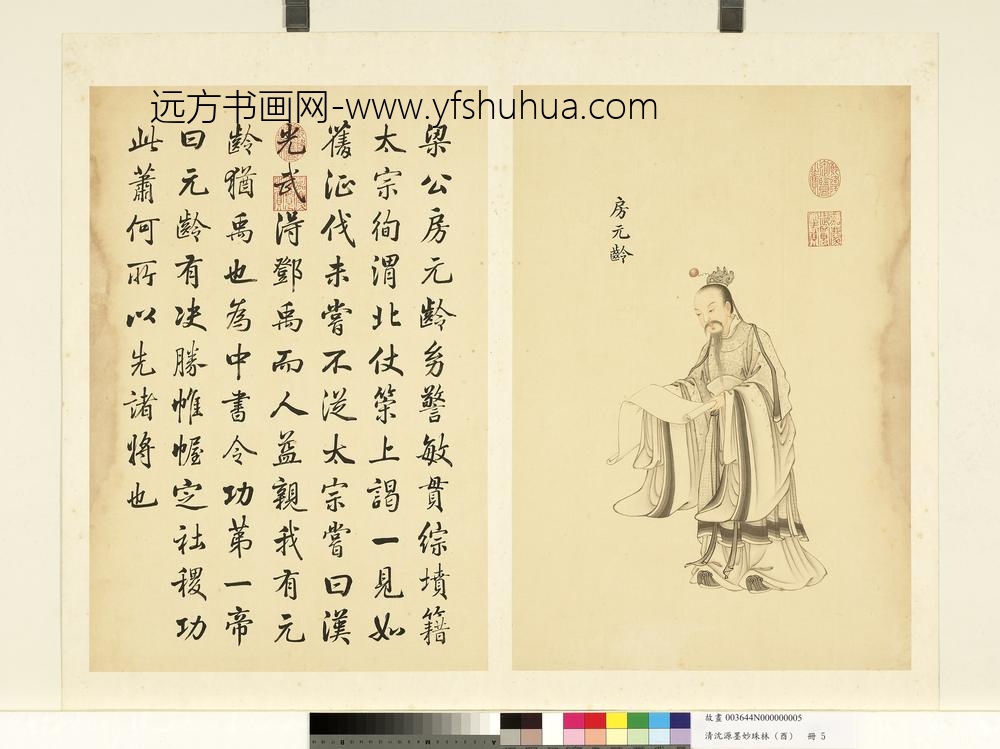 远方书画网-www.yfshuhua.com
房元齡
梁公房元齡幼警敏貫綜墳籍
太宗徇渭北仗策上謁一見如
舊征伐未嘗不從太宗嘗曰漢
光武得鄧禹而人益親我有元
齡猶禹也為中書令功第一帝
曰元齡有決勝帷幄定社稷功
此蕭何所以先諸將也
故畫 003644N000000005
清沈源墨妙珠林（酉） 冊 5